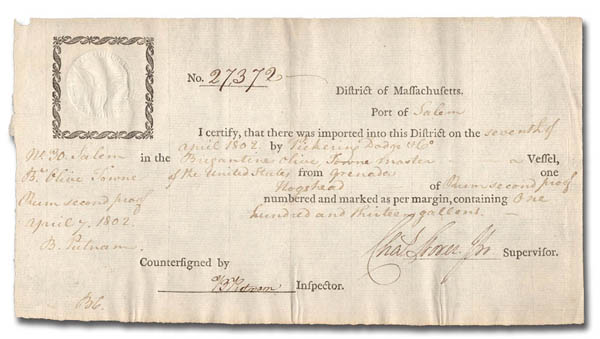 No. 27372
District of Massachusetts.
Port of Salem
I certify, that there was imported into this District on the seventh of
April 1802 by Pickering Dodge & Co
in the Brigantine Olive Towne master a Vessel,
of the United States from Grenada one
Hogshead of Rum second proof
numbered and marked as per margin, containing One
hundred and thirteen gallons.
Supervisor.
Countersigned by
B Putnam Inspector.
No 30 Salem
Olive Towne
Rum second proof
April 7, 1802.
B. Putnam.